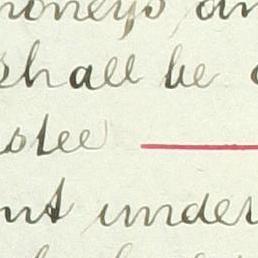 moneys an
shall be
stee
nt under